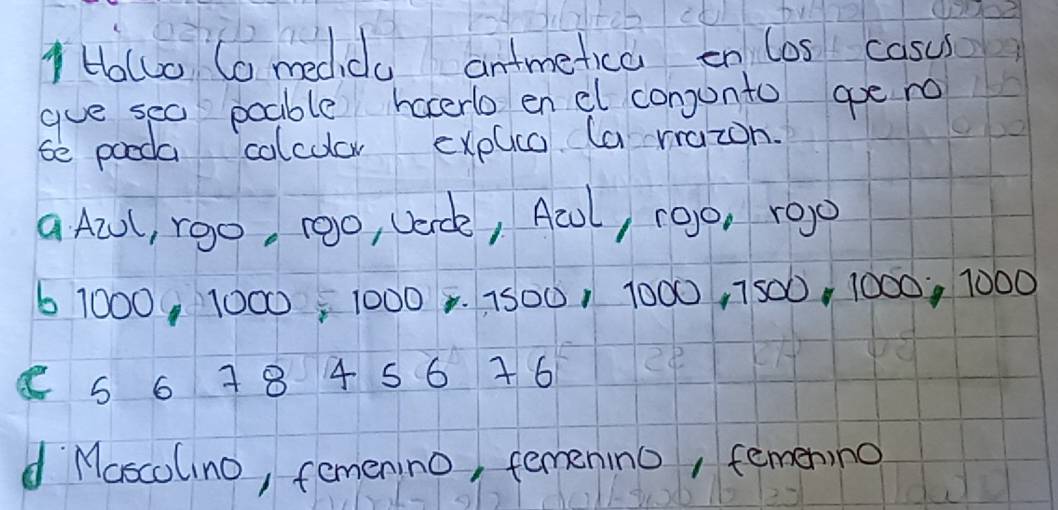 1 Halla la medida aritmetica en los casos
que sea pocible hacerlo en el congunto que no
se pueda calcular explica la rrazon.
a. Azul, rojo, rojo, Verde, Azul, rojo, rojo
b 1000, 1000, 1000, 1500, 1000, 1500, 1000, 1000
c 5 6 7 8 4 5 6 7 6
d Mascolino, femenino, femenino, femenino